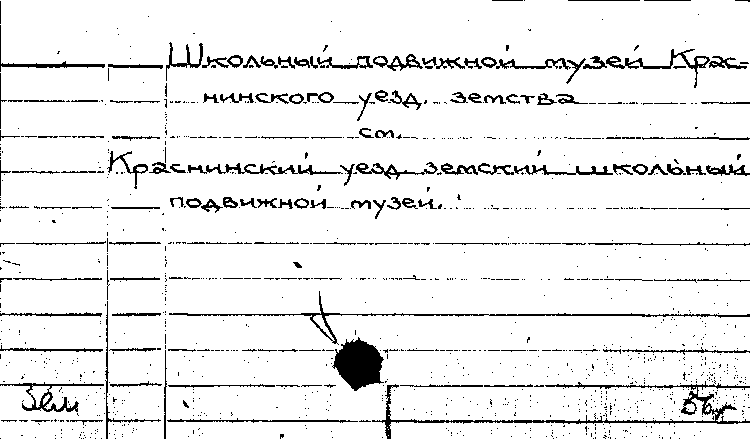 Школьный подвижной музей Крас-
нинского уезд. земства
см.
Краснинский уезд. земский школьный
подвижной музей.
Зем